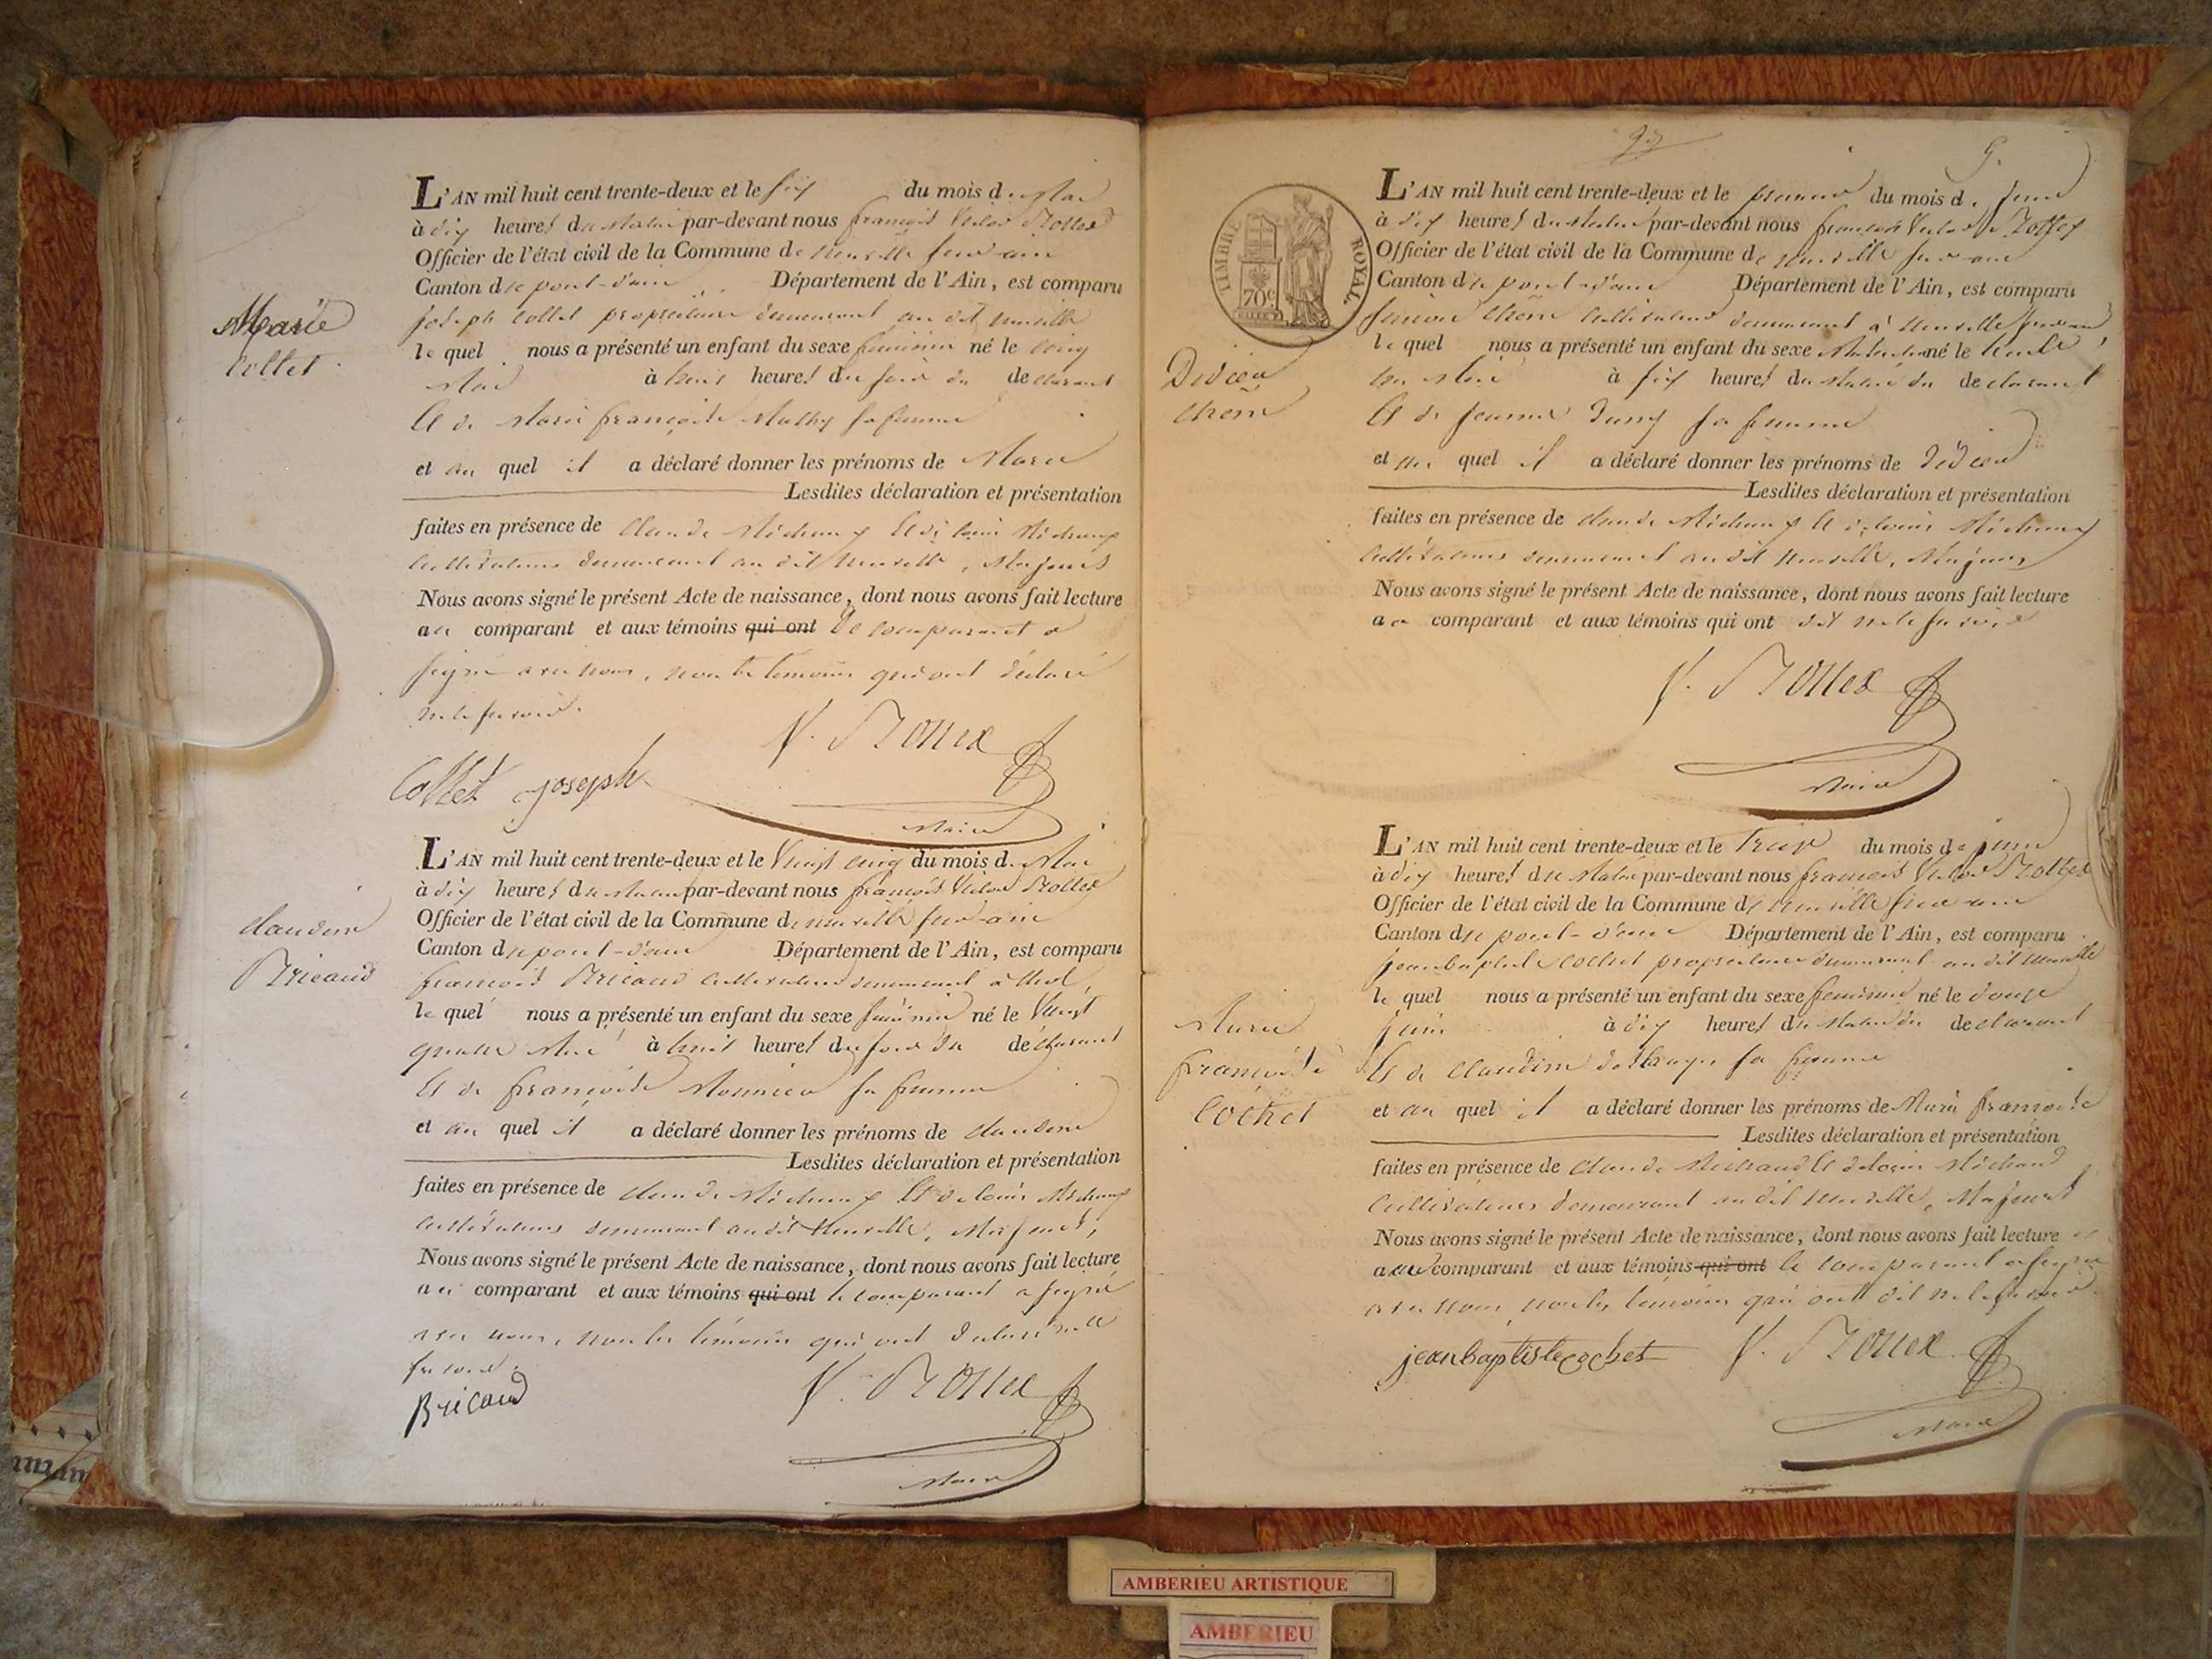 Marie
Collet
L'AN mil huit cent trente-deux et le six du mois de Mai
à dix heures du Matin par-devant nous françois Victor
Officier de l'état civil de la Commune de neuville sur ain
Canton de pont-d'ain Département de l'Ain, est comparu
joseph Collet propriétaire demeurant au dit neuville
le quel nous a présenté un enfant du sexe féminin né le cinq
Mai à huit heures du soir du déclarant
Et de Marie françoise Mathy sa femme
et au quel il a déclaré donner les prénoms de Marie
Lesdites déclaration et présentation
faites en présence de Claude Et de louis
Cultivateurs demeurant au dit Neuville, Majeurs
Nous avons signé le présent Acte de naissance, dont nous avons fait lecture
au comparant et aux témoins qui ont le comparant a
signé avec nous, non les témoins qui ont déclaré
ne le savoir.
Collet joseph
Maire
claudine
Bricaud
L'AN mil huit cent trente-deux et le Vingt cinq du mois de Mai
à dix heures du Matin par-devant nous françois Victor
Officier de l'état civil de la Commune de neuville sur-ain
Canton de pont-d'ain Département de l'Ain, est comparu
françois Bricaud cultivateur demeurant à
le quel nous a présenté un enfant du sexe féminin né le Vingt
quatre Mai à huit heures du soir du déclarant
Et de françoise Monnier sa femme
et au quel il a déclaré donner les prénoms de claudine
Lesdites déclaration et présentation
faites en présence de claude Et de louis
cultivateurs demeurant au dit Neuville, Majeurs,
Nous avons signé le présent Acte de naissance, dont nous avons fait lecture
au comparant et aux témoins qui ont le comparant a signé
avec nous, non les témoins qui ont déclaré ne le
savoir.
Bricaud
Maire
9.
TIMBRE ROYAL
70c
Didier
L'AN mil huit cent trente-deux et le premier du mois de juin
à dix heures du Matin par-devant nous françois Victor
Officier de l'état civil de la Commune de neuville sur-ain
Canton de pont-d'ain Département de l'Ain, est comparu
cultivateur demeurant à Neuville sur ain,
le quel nous a présenté un enfant du sexe Masculin né le trente
un Mai à six heures du Matin du déclarant
Et de jeanne sa femme
et au quel il a déclaré donner les prénoms de Didier
Lesdites déclaration et présentation
faites en présence de claude Et de louis
cultivateurs demeurant au dit Neuville, Majeurs
Nous avons signé le présent Acte de naissance, dont nous avons fait lecture
au comparant et aux témoins qui ont dit ne le savoir
Maire
Marie
françoise
Cochet
L'AN mil huit cent trente-deux et le Treize du mois de juin
à dix heures du Matin par-devant nous françois Victor
Officier de l'état civil de la Commune de neuville sur ain
Canton de pont-d'ain Département de l'Ain, est comparu
jean baptiste Cochet propriétaire demeurant au dit neuville
le quel nous a présenté un enfant du sexe féminin né le douze
juin à dix heures du Matin du déclarant
Et de Claudine sa femme
et au quel il a déclaré donner les prénoms de Marie françoise
Lesdites déclaration et présentation
faites en présence de claude Michaud Et de louis Michaud
Cultivateurs demeurant au dit neuville, Majeurs
Nous avons signé le présent Acte de naissance, dont nous avons fait lecture
au comparant et aux témoins qui ont le comparant a signé
avec nous, non les témoins qui ont dit ne le savoir
jean baptiste cochet
Maire
AMBERIEU ARTISTIQUE
AMBERIEU